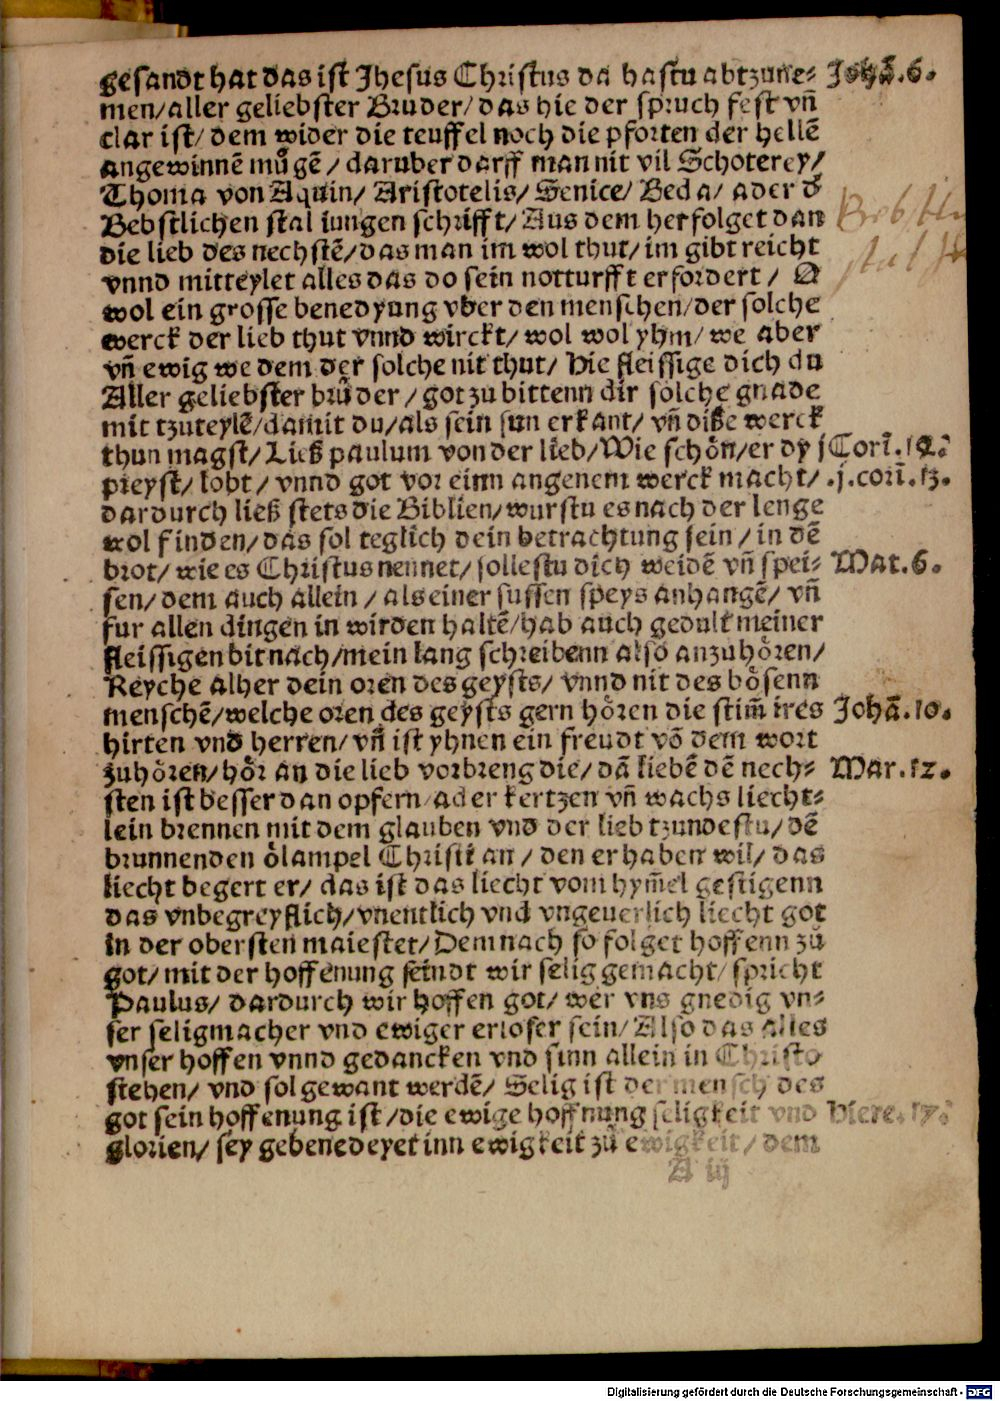 gesandt hat das ist Jhesus Christus da hastu abtzune⸗ Johā.6.
men/ aller geliebster Bruder/ das hie der spruch fest vñ
clar ist/ dem wider die teuffel noch die pforten der hellē
angewinnē mu̇gē/ daruber darff man nit vil Schoterey/
Thoma von Aquin/ Aristotelis/ Senice/ Beda/ ader d
Bebstlichen stal iungen schrifft/ Aus dem herfolget dan
die lieb des nechstē/ das man im wol thut/ im gibt reicht
vnnd mitteylet alles das do sein notturfft erfordert/ O
wol ein grosse benedyung vber den menschen/ der solche
werck der lieb thut vnnd wirckt/ wol wol yhm/ we aber
vñ ewig we dem der solche nit thut/ Hie fleissige dich du
Aller geliebster bru̇der/ got zu bittenn dir solche gnade
mit tzuteylē/ damit du/ als sein sun erkant/ vñ diße werck
thun magst/ Ließ paulum von der lieb/ Wie schön/ er dy j Cori.12.
preyst/ lobt/ vnnd got vor einn angenem werck macht/ .j.corī.13.
dardurch ließ stets die Biblien/ wurstu es nach der lenge
wol finden/ das sol teglich dein betrachtung sein/ in dē
brot/ wie es Christus nennet/ sollestu dich weidē vñ spei⸗ Mat.6.
sen/ dem auch allein/ als einer sussen speys anhangē/ vñ
fur allen dingen in wirden haltē/ hab auch gedult meiner
fleissigen bit nach/ mein lang schreibenn also anzuhören/
Reyche alher dein oren des geysts/ vnnd nit des bösenn
menschē/ welche oren des geysts gern hören die stim̄ ires Johā.10.
hirten vnd herren/ vñ ist yhnen ein freudt vō dem wort
zuhören/ hör an die lieb vorbreng die/ dā liebē dē nech⸗ Mar.12.
sten ist besser dan opfern/ ader kertzen vñ wachs liecht⸗
lein brennen mit dem glauben vnd der lieb tzundestu/ dē
brunnenden ölampel Christi an/ den er haben wil/ das
liecht begert er/ das ist das liecht vom hym̄el gestigenn
das vnbegreyflich/ vnentlich vnd vngeuerlich liecht got
in der obersten maiestet/ Demnach so folget hoffenn zů
got/ mit der hoffenung seindt wir selig gemacht/ spricht
Paulus/ dardurch wir hoffen got/ wer vns gnedig vn⸗
ser seligmacher vnd ewiger erloser sein/ Also das alles
vnser hoffen vnnd gedancken vnd sinn allein in Christo
stehen/ vnd sol gewant werdē/ Selig ist der mensch des
got sein hoffenung ist/ die ewige hoffnung seligkeit vnd Hiere.17.
glorien/ sey gebenedeyet inn ewigkeit zů ewigkeit/ dem
A iij
Digitalisierung gefördert durch die Deutsche Forschungsgemeinschaft - DFG